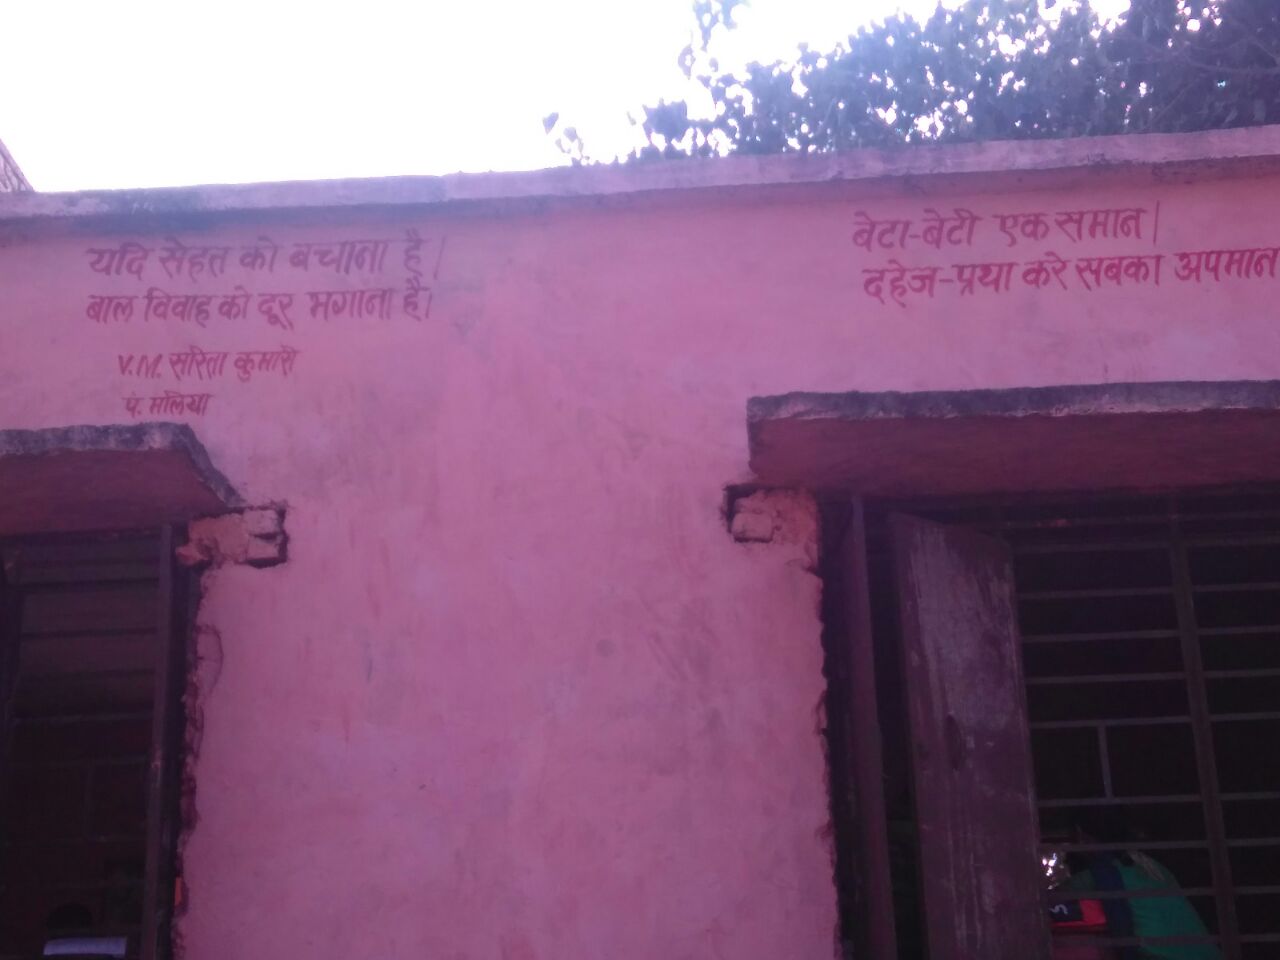 यदि सेहत को बचाना है।
बाल विवाह को दूर भगाना है।
V.M. सरिता कुमारी
पं. मलिया
बेटा-बेटी एक समान।
दहेज-प्रथा करे सबका अपमान